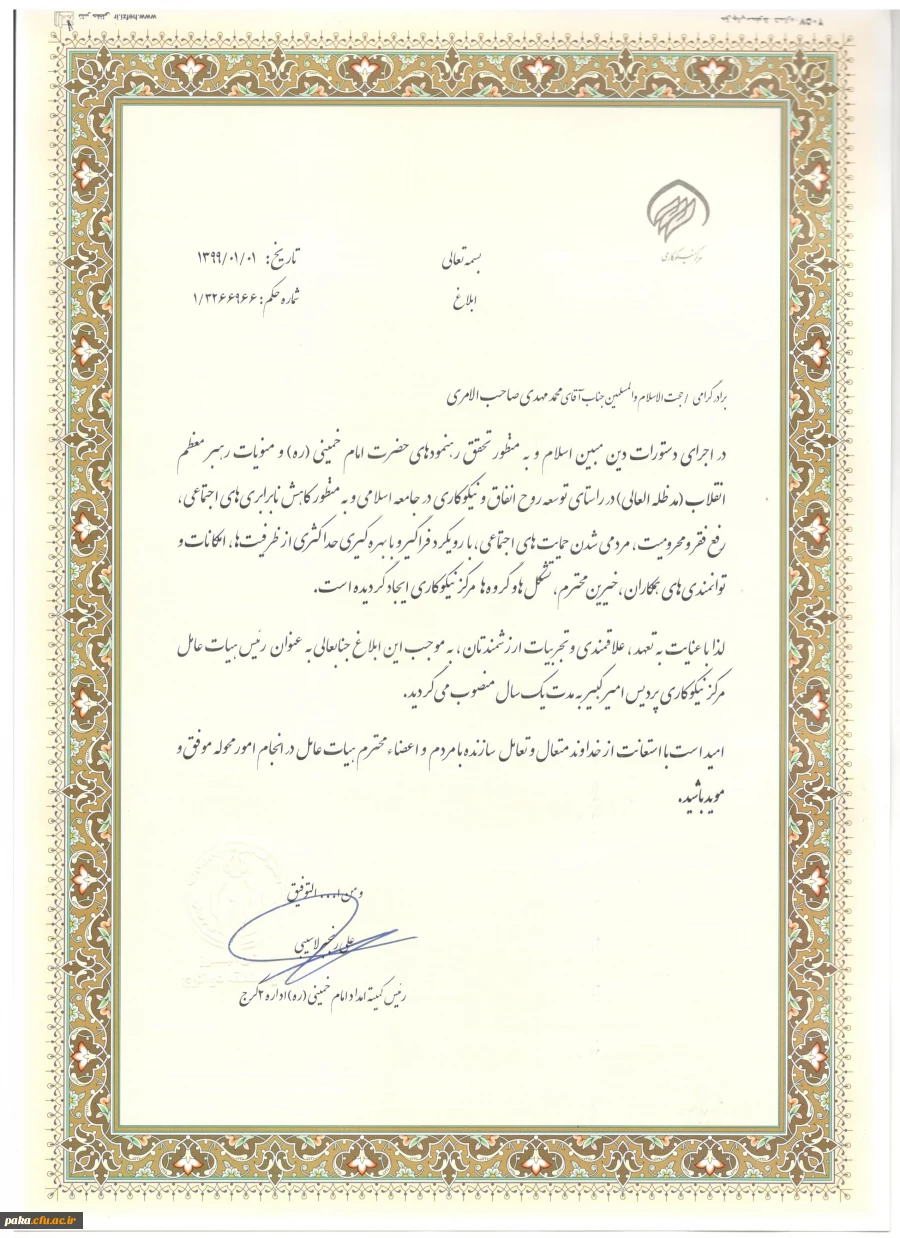 www.hefzi.ir نشر حفظی
مرکز نیکوکاری
بسمه تعالی
تاریخ: ۱۳۹۹/۰۱/۰۱
ابلاغ
شماره حکم: ۱/۳۲۶۶۹۶۶
برادر گرامی / حجت الاسلام والمسلمین جناب آقای محمد مهدی صاحب الامری
در اجرای دستورات دین مبین اسلام و به منظور تحقق رهنمودهای حضرت امام خمینی (ره) و منویات رهبر معظم
انقلاب (مد ظله العالی) در راستای توسعه روح انفاق و نیکوکاری در جامعه اسلامی و به منظور کاهش نابرابری های اجتماعی،
رفع فقر و محرومیت، مردمی شدن حمایت های اجتماعی، با رویکرد فراگیر و با بهره گیری حداکثری از ظرفیت ها، امکانات و
توانمندی های همکاران، خیرین محترم، تشکل ها و گروه ها مرکز نیکوکاری ایجاد گردیده است.
لذا با عنایت به تعهد، علاقمندی و تجربیات ارزشمندتان، به موجب این ابلاغ جنابعالی به عنوان رئیس هیات عامل
مرکز نیکوکاری پردیس امیرکبیر به مدت یک سال منصوب می گردید.
امید است با استعانت از خداوند متعال و تعامل سازنده با مردم و اعضاء محترم هیات عامل در انجام امور محوله موفق و
موید باشید.
و من ا... التوفیق
علی رنجبر لاسیبی
رئیس کمیته امداد امام خمینی (ره) اداره ۲ کرج
paka.cfu.ac.ir